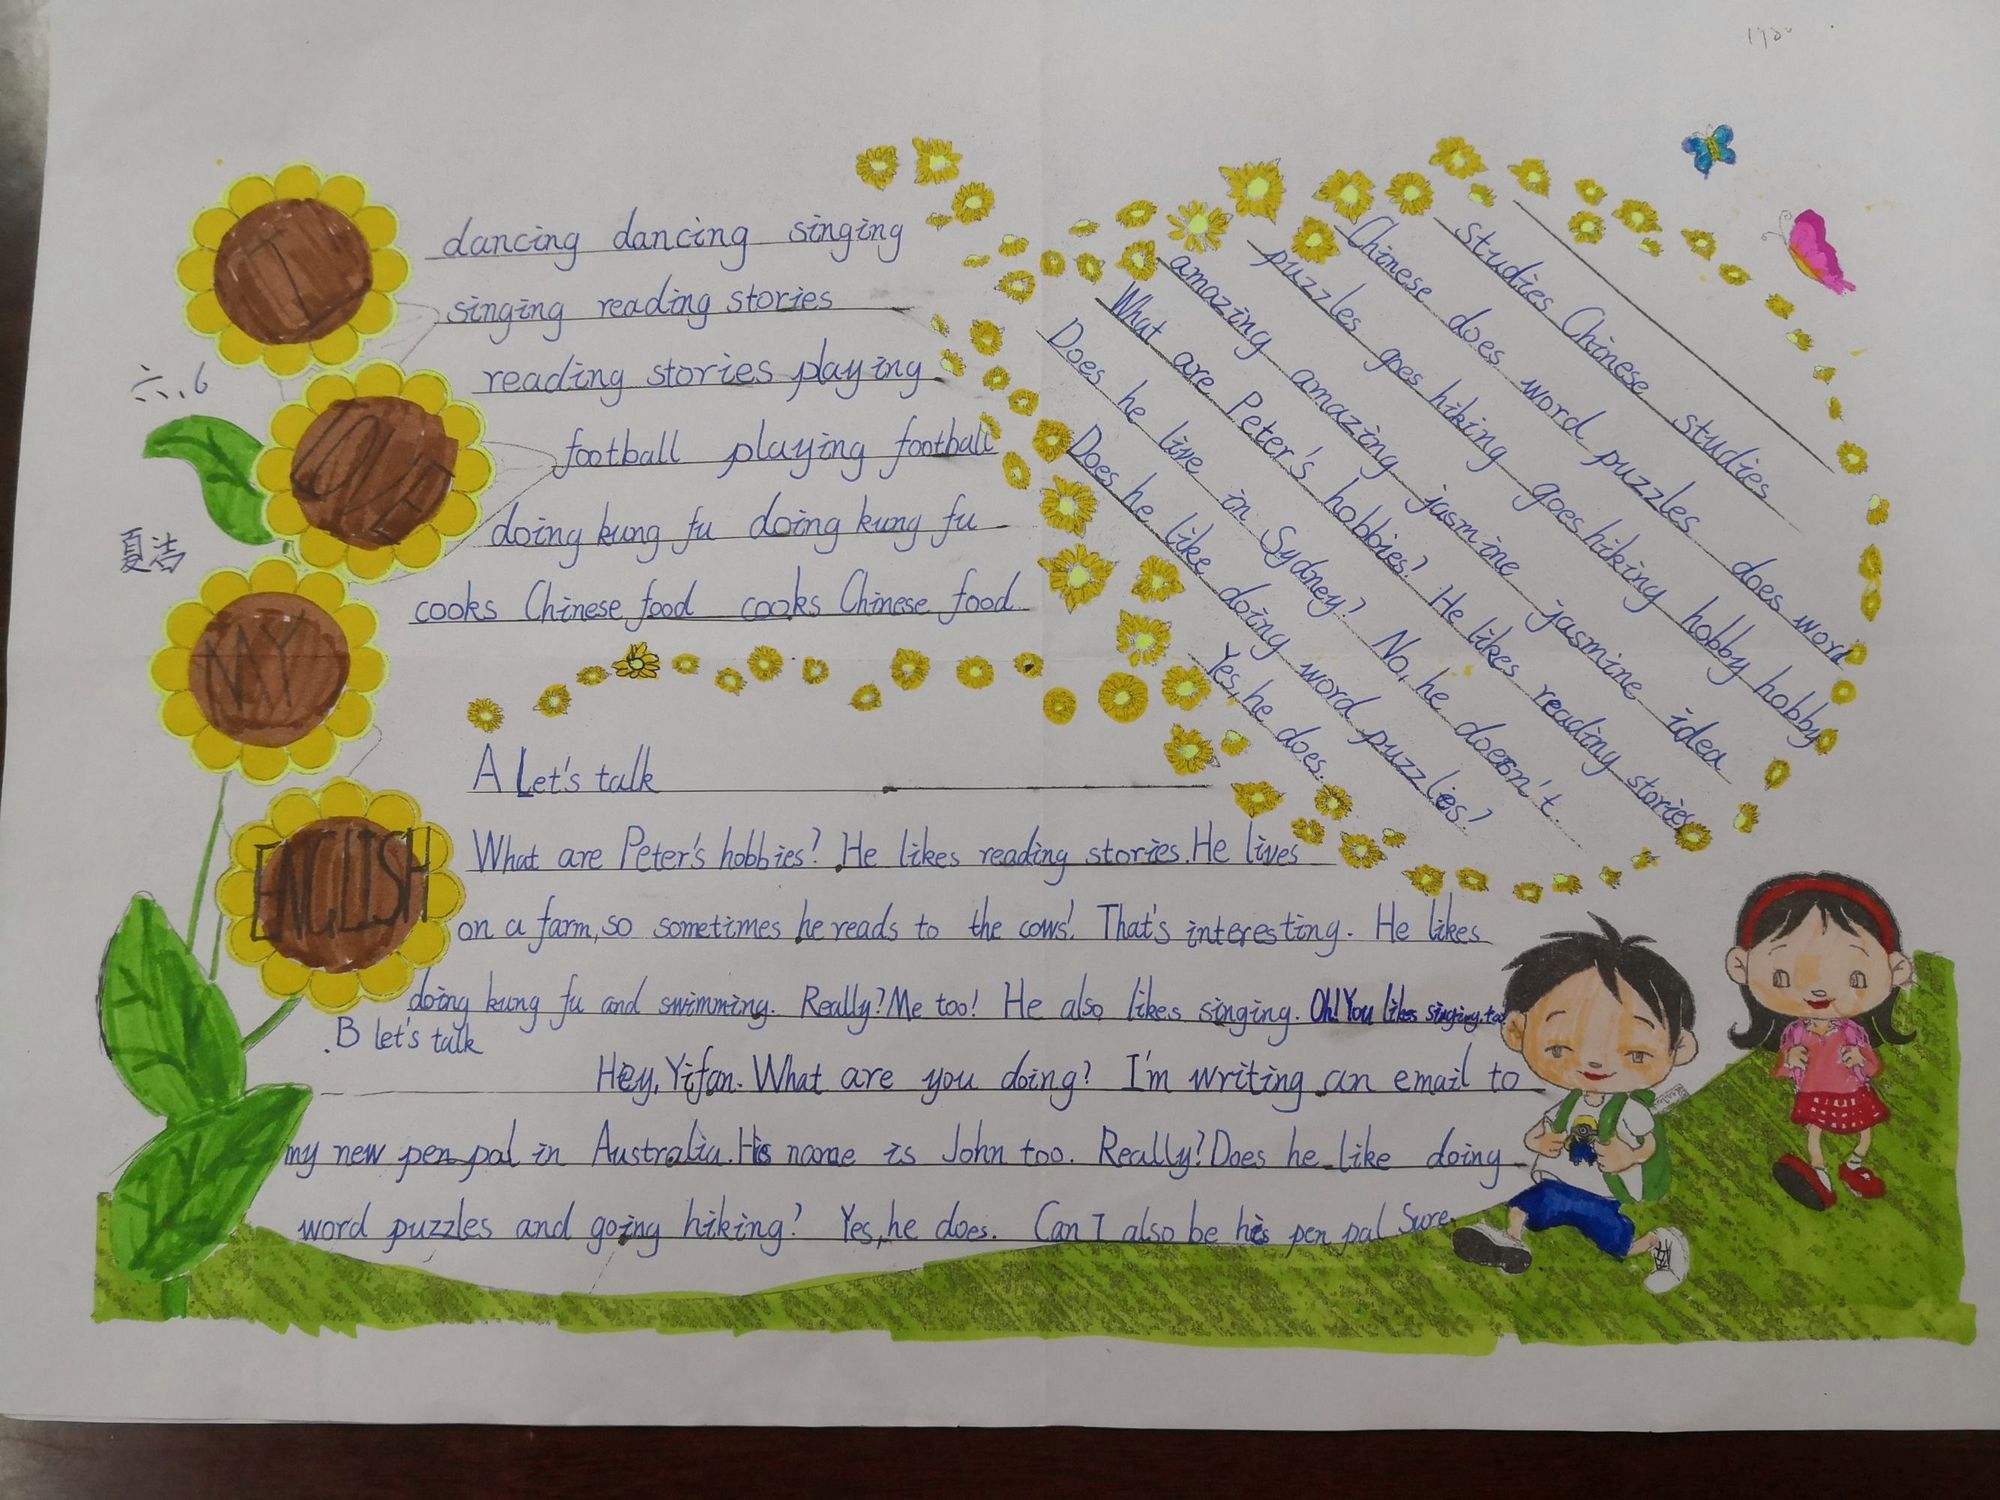 I
LOVE
MY
ENGLISH
六.6
夏涛
dancing dancing singing
singing reading stories
reading stories playing
football playing football
doing kung fu doing kung fu
cooks Chinese food cooks Chinese food
studies Chinese studies
Chinese does word puzzles does word
puzzles goes hiking goes hiking hobby hobby
amazing amazing jasmine jasmine idea
What are Peter's hobbies? He likes reading stories
Does he live in Sydney? No, he doesn't.
Does he like doing word puzzles?
Yes, he does.
A Let's talk
What are Peter's hobbies? He likes reading stories. He lives
on a farm, so sometimes he reads to the cows! That's interesting. He likes
doing kung fu and swimming. Really? Me too! He also likes singing. Oh! You likes singing, too
B let's talk
Hey, Yifan. What are you doing? I'm writing an email to
my new pen pal in Australia. His name is John too. Really? Does he like doing
word puzzles and going hiking? Yes, he does. Can I also be his pen pal Sure.